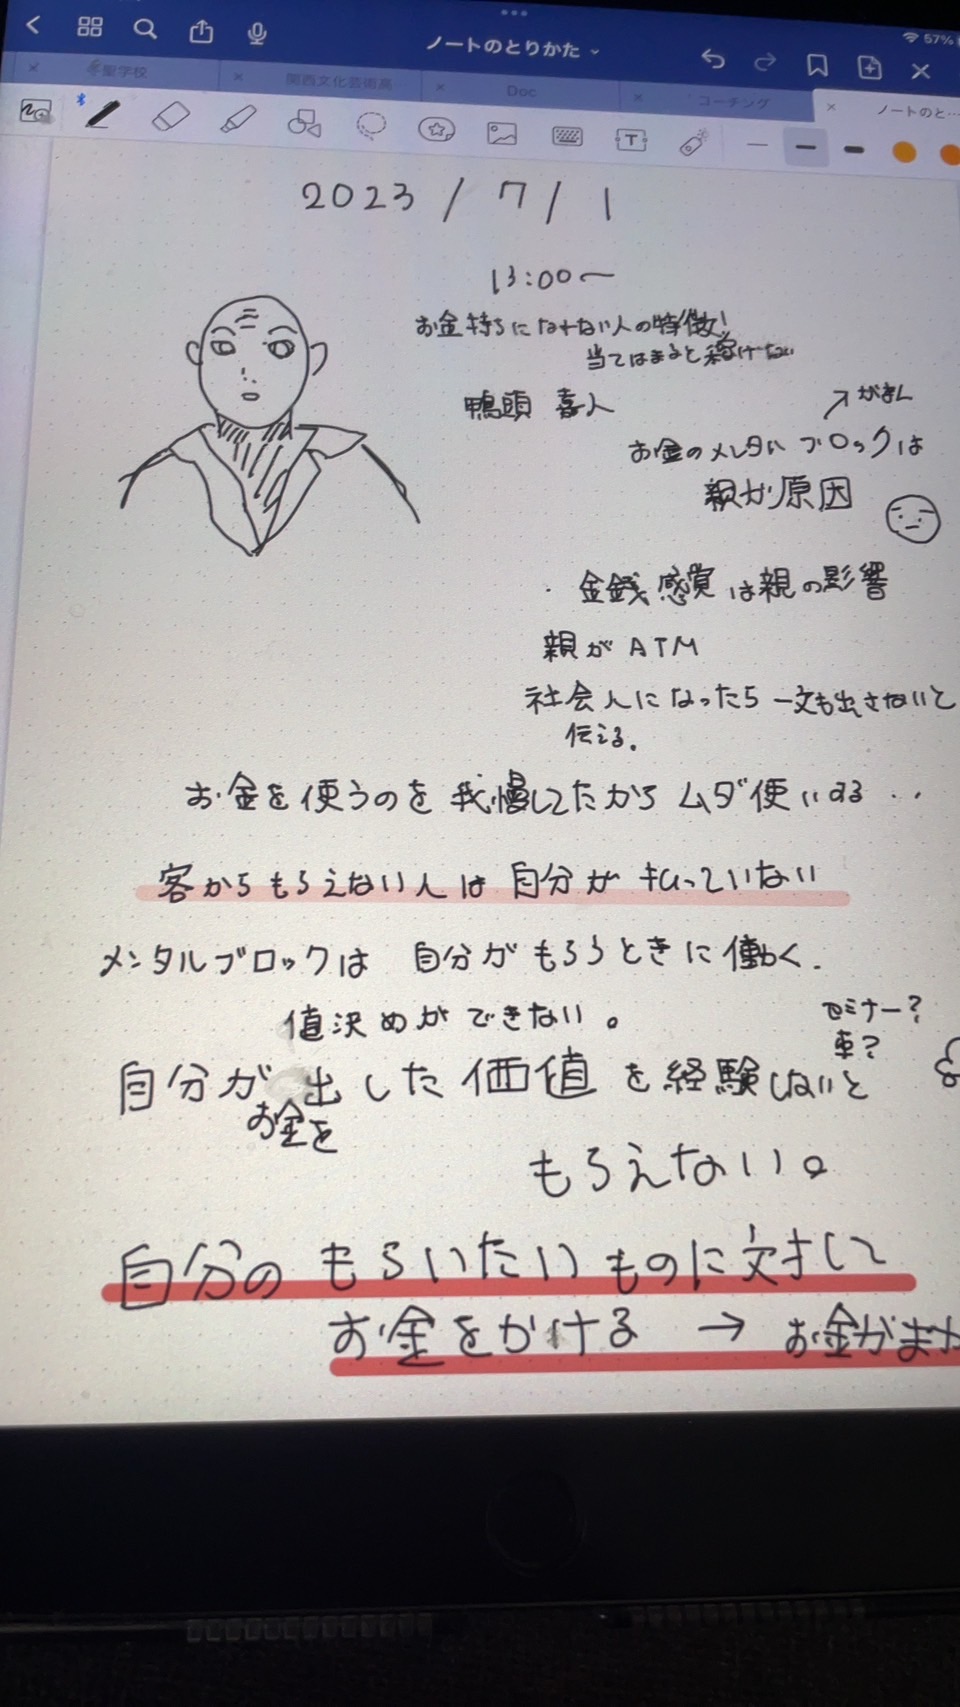 57%
ノートのとりかた
聖学校
関西文化芸術高
Doc
コーチング
ノートのと…
2023/7/1
13:00〜
お金持ちになれない人の特徴!
当てはまると稼げない
鴨頭 嘉人
がまん
お金のメンタルブロックは
親が原因
・金銭感覚は親の影響
親がATM
社会人になったら一文も出さないと
伝える。
お金を使うのを我慢してたからムダ使いする・・
客からもらえない人は自分が払っていない
メンタルブロックは 自分がもらうときに働く.
値決めができない。
セミナー?
車?
自分が出した価値を経験しないと
お金を
もらえない。
自分のもらいたいものに対して
お金をかける → お金がまわ